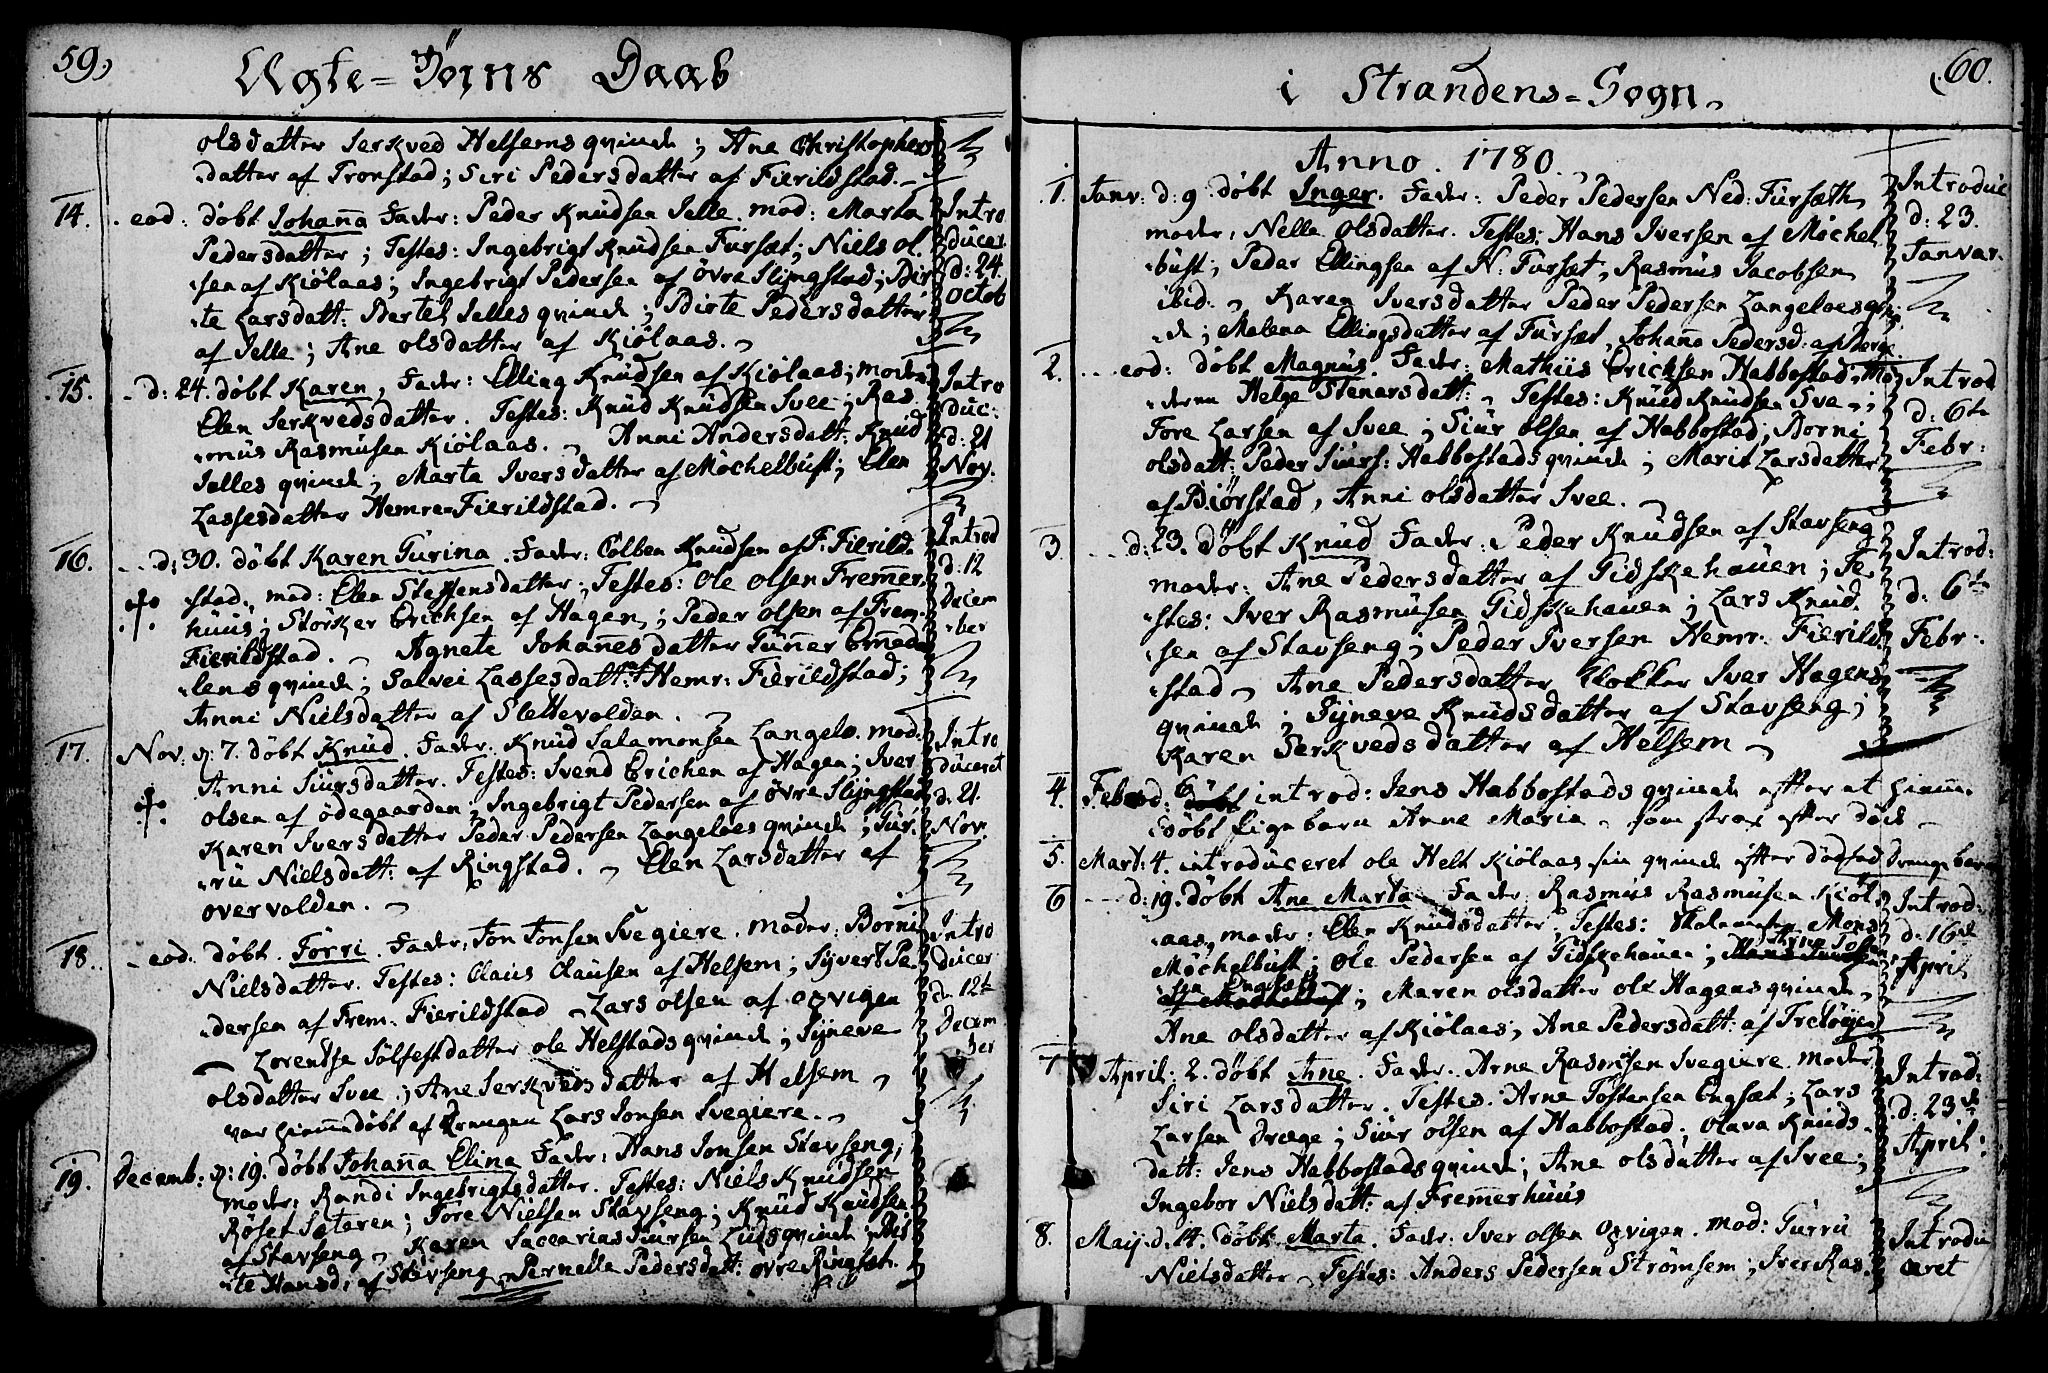 59.
Ægte-Børns Daab
olsdatter Serkved Helsems qvinde; Ane Christophers
datter af Tronstad; Siri Pedersdatter af Fierildstad.
14. eod: døbt Johanna Fader: Peder Knudsen Jelle. mod: Marta
Pedersdatter; Testes: Ingebrigt Knudsen Fursæt; Niels ol-
sen af Kiölaas; Ingebrigt Pedersen af övre Slyngstad; Bir-
te Larsdatt: Bertel Jelles qvinde; Birte Pedersdatter
af Jelle; Ane olsdatter af Kiölaas.
Intro
ducer
d: 24.
Octob
15. d: 24. döbt Karen, Fader: Elling Knudsen af Kiölaas; moder
Elen Serkvedsdatter. Testes: Knud Knudsen Svee; Ras-
mus Rasmusen Kiölaas. Anni Andersdatt: Knud
Jelles qvinde; Marta Iversdatter af Möchelbust; Elen
Lassesdatter Hemre-Fierildstad.
Intro
duc:
d: 21
Nov.
16. d: 30. döbt Karen Turina. Fader: Colben Knudsen af F: Fierild-
stad. mod: Elen Steffensdatter; Testes: Ole olsen Fremer-
huus; Störker Erichsen af Hagen; Peder olsen af Frem-
Fierildstad. Agnete Johannesdatter Gunner Emeda-
lens qvinde; Salvei Lassesdatt: af Hemr: Fierildstad;
Anni Nielsdatter af Slettevolden.
Introd
d: 12
Decem
ber
17. Nov: d: 7. döbt Knud. Fader: Knud Salamonsen Langelo. mod:
Anni Siursdatter. Testes: Svend Erichsen af Hagen; Iver
olsen af ödegaarden; Ingebrigt Pedersen af övre Slyngstad
Karen Iversdatter Peder Pedersen Langeloes qvinde; Gur-
ru Nielsdatt: af Ringstad. Elen Larsdatter af
overvolden.
Intro
duceret
d: 21.
Nov.
18. eod: döbt Torri. Fader: Jon Jonsen Svegiere. Moder: Borni
Nielsdatter. Testes: Claus Clausen af Helsem; Syvert Pe-
dersen af Frem- Fierildstad Lars olsen af opvigen
Lorentse Sölfestdatter ole Helstads qvinde; Syneve
olsdatter Svee; Ane Serkvedsdatter af Helsem
var hiemmedöbt af Drengen Lars Jonsen Svegiere.
Intro
ducer
d: 12te
Decem
ber
19. Decemb: d: 19. döbt Johanna Elina Fader: Hans Jonsen Stavseng;
moder: Randi Ingebrigtsdatter. Testes: Niels Knudsen
Röset Sæteren; Tore Nielsen Stavseng; Knud Knudsen
af Stavseng, Karen Saccarias Siursen Luds qvinde; Bir-
te Hansd: af Stavseng Pernelle Pedersdatt: övre Ringset.
60.
i Strandens-Sogn
Anno. 1780.
1. Janv: d: 9. döbt Inger. Fader: Peder Pedersen Ned: Fursæth
moder: Nelle olsdatter. Testes: Hans Iversen af Möchel
bust; Peder Ellingsen af N: Fursæt, Rasmus Jacobsen
ibid. Karen Iversdatter Peder Pedersen Langeloes qvin-
de; Malena Ellingsdatter af Fursæt, Johanna Pedersd: af Berge
Introduc
d: 23.
Janvar.
2. eod: döbt Magnus. Fader: Mathiis Ericksen Habbostad; Mo-
deren Helge Stenarsdatt: Testes: Knud Knudsen Sve
Tore Larsen af Svee; Siur olsen af Habbostad; Borni
olsdatt: Peder Siurs: Habbostads qvinde; Marit Larsdatter
af Biörstad, Anni olsdatter Svee.
Introd
d: 6te
Febr:
3. d: 23. döbt Knud Fader: Peder Knudsen af Stavseng
moder: Ane Pedersdatter af Gidskehauen; Te-
stes: Iver Rasmusen Gidskehauen; Lars Knud-
sen af Stavseng; Peder Iversen Hemr- Fierild-
stad, Ane Pedersdatter Klokker Iver Hagens
qvinde; Syneve Knudsdatter af Stavseng;
Karen Serkvedsdatter af Helsem
Introd:
d: 6te
Febr:
4. Febr: d: 6 introd: Jens Habbostads qvinde efter et hiemme
döbt Pigebarn Anne Maria som strax efter döde
5. Mart: 4. introduceret ole Helt Kiölaas sin qvinde efter dödföd Drengebarn
6 d: 19. döbt Ane Marta Fader Rasmus Rasmusen Kiöl-
aas, moder: Elen Knudsdatter, Testes: Skolemester Mons
Möchelbust; ole Pedersen af Gidskehauen; Arne Toste-
sen Engset; Maren olsdatter ole Hagens qvinde,
Ane olsdatter af Kiölaas; Ane Pedersdatt: af Tretöyen
Introd:
d: 16de
April
7 April: 2. döbt Ane. Fader: Arne Rasmusen Svegiere. moder
Siri Larsdatter. Testes. Arne Tostensen Engsæt; Lars
Larsen Dræge; Siur olsen af Habbostad; Olava Knuds-
datt: Jens Habbostads qvinde; Ane olsdatter af Svee;
Ingebor Nielsdatt: af Fremerhuus
Introd:
d: 23de
April:
8. Maij d. 14. döbt Marta. Fader: Iver olsen Opvigen. mod: Gurru
Nielsdatter. Testes: Anders Pedersen Strömsem; Iver Ras-
Introdu
ceret